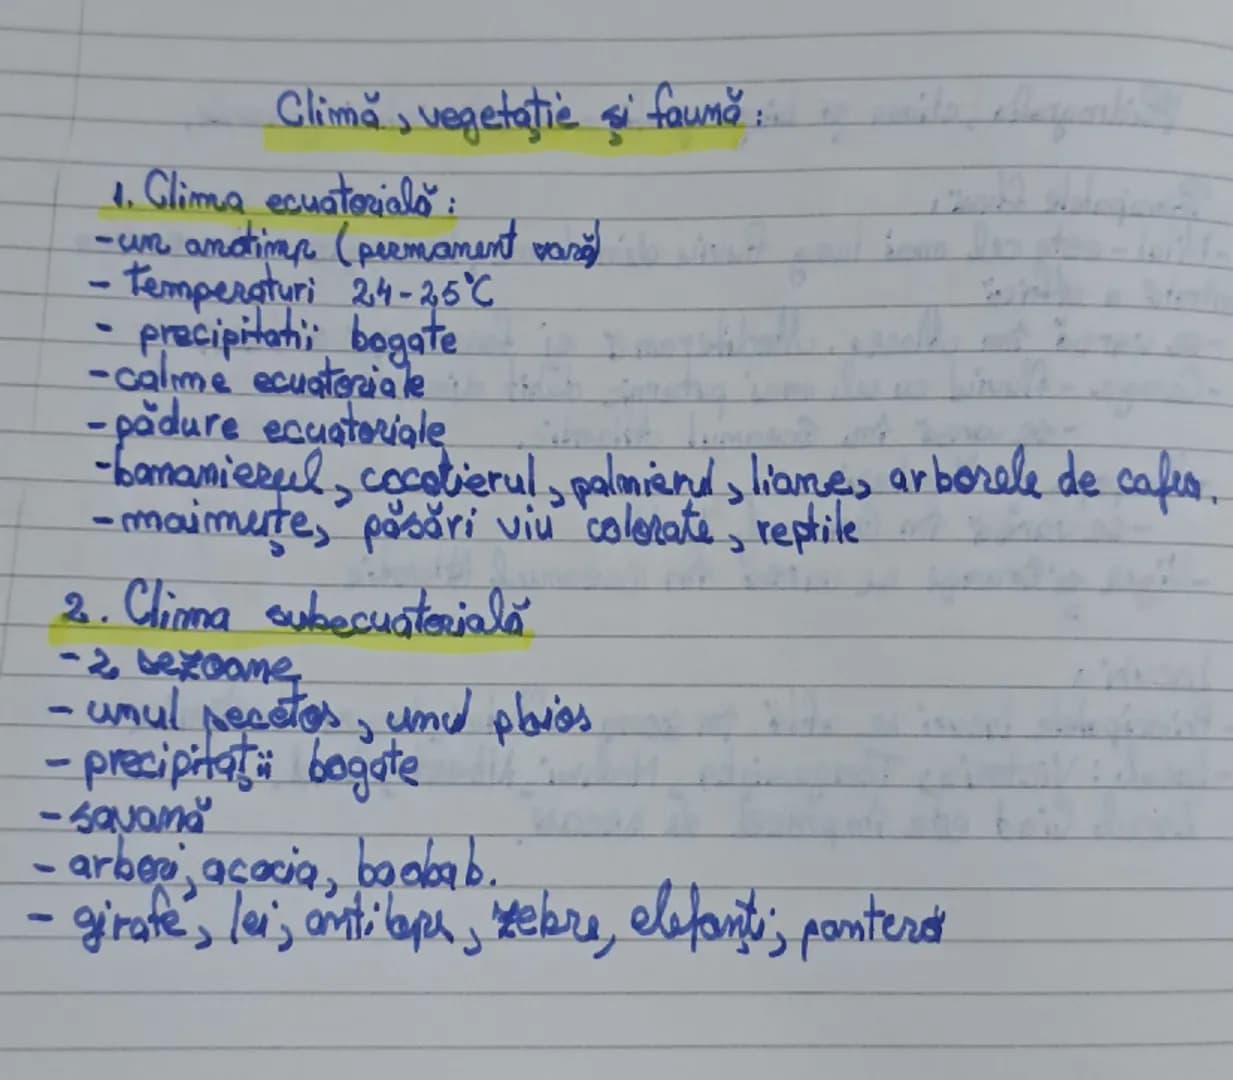 Climă, vegetație și faună:
1. Clima ecuatorială:
- un anotimp (permanent vară)
- temperaturi 24-25°C
- precipitatii bogate
- calme ecuatoriale
- pădure ecuatoriale
- bananierul, cocotierul, palmierul, liane, arborele de cafea.
- maimuțe, păsări viu colorate, reptile
2. Clima subecuatorială
- 2 sezoane
- unul secetos, unul ploios
- precipitații bogate
- savană
- arbori, acacia, baobab.
- girafe, lei, antilope, zebre, elefanți, pantera